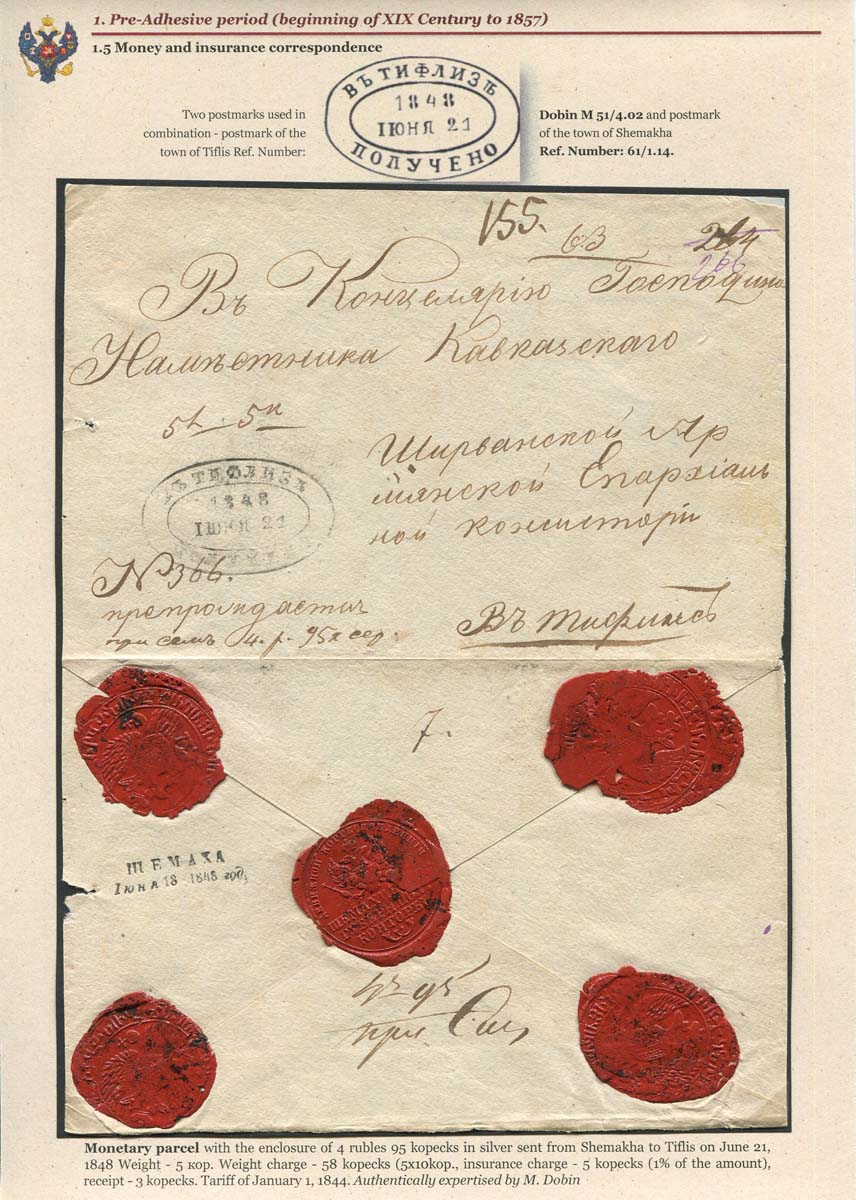 1. Pre-Adhesive period (beginning of XIX Century to 1857)
1.5 Money and insurance correspondence
Two postmarks used in
combination - postmark of the
town of Tiflis Ref. Number:
ВЪ ТИФЛИЗѢ
1848
IЮНЯ 21
ПОЛУЧЕНО
Dobin M 51/4.02 and postmark
of the town of Shemakha
Ref. Number: 61/1.14.
155.
63
264
266
Въ Канцелярію Господина
Намѣстника Кавказскаго
Ширванской Ар
мянской Епархіаль
ной консисторіи
ВЪ ТИФЛИЗѢ
1848
IЮНЯ 21
№ 366.
препровождается
при семъ 4. р. 95 к сер.
Въ Тифлисъ
7.
ШЕМАХА
Iюня 18 1848 год.
95
Monetary parcel with the enclosure of 4 rubles 95 kopecks in silver sent from Shemakha to Tiflis on June 21,
1848 Weight - 5 кор. Weight charge - 58 kopecks (5x10кор., insurance charge - 5 kopecks (1% of the amount),
receipt - 3 kopecks. Tariff of January 1, 1844. Authentically expertised by M. Dobin